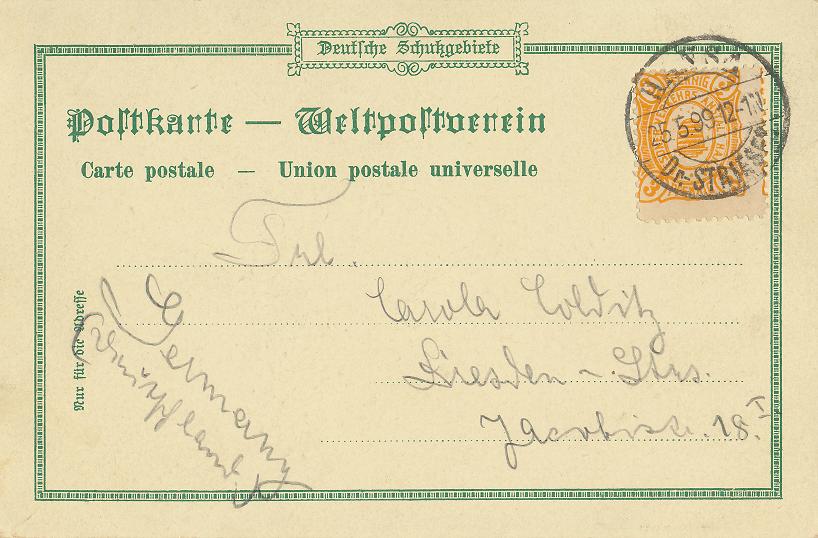 Deutsche Schutzgebiete
Postkarte — Weltpostverein
Carte postale — Union postale universelle
HANSA
25.5.99.12-1N.
Dr.-STRIESEN
3 PFENNIG 3
3
Frl.
Carola Colditz
Dresden - Strs.
Jacobistr. 18.I
Germany
Deutschland
Nur für die Adresse